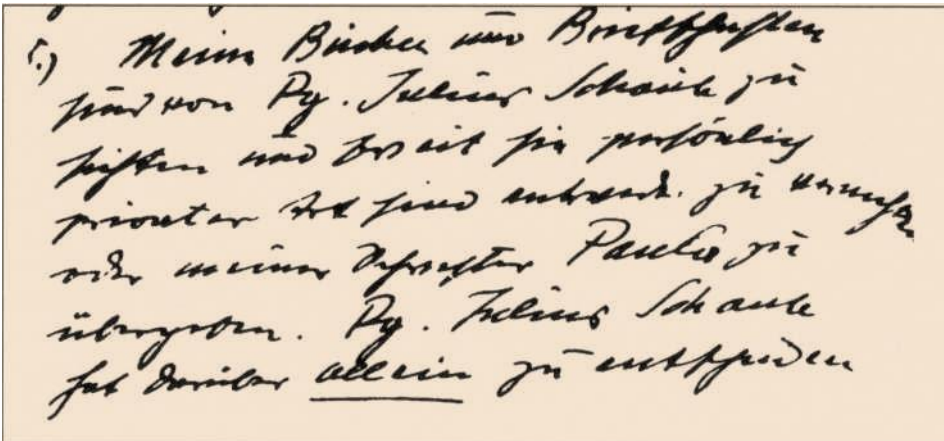 5.) Meine Bücher und Briefschaften
sind von Pg. Julius Schaub zu
sichten und soweit sie persönlich
privater Art sind entwed. zu vernichten
oder meiner Schwester Paula zu
übergeben. Pg. Julius Schaub
hat darüber allein zu entscheiden